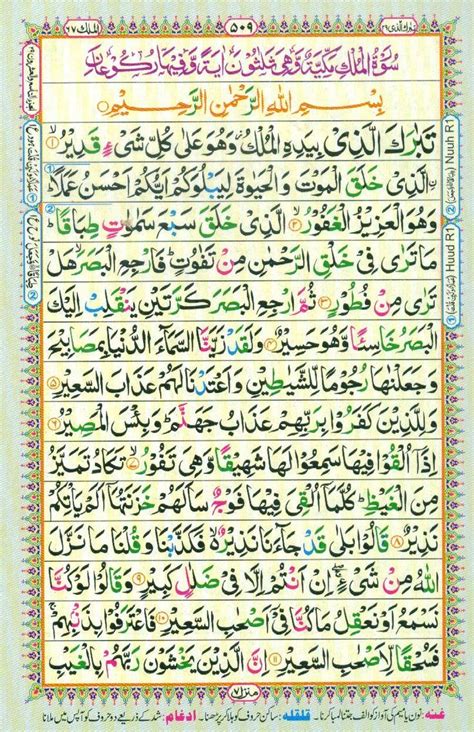 الملك ٦٧
٥٠٩
تبرك الذي ٢٩
سُوْرَةُ الْمُلْكِ مَكِّيَّةٌ وَّهِيَ ثَلٰثُوْنَ اٰيَةً وَّفِيْهَا رُكُوْعَانِ
بِسْمِ اللهِ الرَّحْمٰنِ الرَّحِيْمِ
تَبٰرَكَ الَّذِيْ بِيَدِهِ الْمُلْكُ وَهُوَ عَلٰى كُلِّ شَيْءٍ قَدِيْرُۨ ۙ﴿۱﴾
الَّذِيْ خَلَقَ الْمَوْتَ وَالْحَيٰوةَ لِيَبْلُوَكُمْ اَيُّكُمْ اَحْسَنُ عَمَلًا ؕ
وَهُوَ الْعَزِيْزُ الْغَفُوْرُ ۙ﴿۲﴾ الَّذِيْ خَلَقَ سَبْعَ سَمٰوٰتٍ طِبَاقًا ؕ
مَا تَرٰى فِيْ خَلْقِ الرَّحْمٰنِ مِنْ تَفٰوُتٍ ؕ فَارْجِعِ الْبَصَرَ ۙ هَلْ
تَرٰى مِنْ فُطُوْرٍ ﴿۳﴾ ثُمَّ ارْجِعِ الْبَصَرَ كَرَّتَيْنِ يَنْقَلِبْ اِلَيْكَ
الْبَصَرُ خَاسِئًا وَّهُوَ حَسِيْرٌ ﴿۴﴾ وَلَقَدْ زَيَّنَّا السَّمَآءَ الدُّنْيَا بِمَصَابِيْحَ
وَجَعَلْنٰهَا رُجُوْمًا لِّلشَّيٰطِيْنِ وَاَعْتَدْنَا لَهُمْ عَذَابَ السَّعِيْرِ ﴿۵﴾
وَلِلَّذِيْنَ كَفَرُوْا بِرَبِّهِمْ عَذَابُ جَهَنَّمَ ؕ وَبِئْسَ الْمَصِيْرُ ﴿۶﴾
اِذَآ اُلْقُوْا فِيْهَا سَمِعُوْا لَهَا شَهِيْقًا وَّهِيَ تَفُوْرُ ۙ﴿۷﴾ تَكَادُ تَمَيَّزُ
مِنَ الْغَيْظِ ؕ كُلَّمَآ اُلْقِيَ فِيْهَا فَوْجٌ سَاَلَهُمْ خَزَنَتُهَآ اَلَمْ يَاْتِكُمْ
نَذِيْرٌ ﴿۸﴾ قَالُوْا بَلٰى قَدْ جَآءَنَا نَذِيْرٌ ۙ فَكَذَّبْنَا وَقُلْنَا مَا نَزَّلَ
اللهُ مِنْ شَيْءٍ ۚ اِنْ اَنْتُمْ اِلَّا فِيْ ضَلٰلٍ كَبِيْرٍ ﴿۹﴾ وَقَالُوْا لَوْ كُنَّا
نَسْمَعُ اَوْ نَعْقِلُ مَا كُنَّا فِيْٓ اَصْحٰبِ السَّعِيْرِ ﴿۱۰﴾ فَاعْتَرَفُوْا بِذَنْۢبِهِمْ ۚ
فَسُحْقًا لِّاَصْحٰبِ السَّعِيْرِ ﴿۱۱﴾ اِنَّ الَّذِيْنَ يَخْشَوْنَ رَبَّهُمْ بِالْغَيْبِ
منزل ۷
غنّه: نون یا میم کی آواز کو الف جتنا لمبا کرنا۔ قلقله: ساکن حروف کو ہلا کر پڑھنا۔ ادغام: شد کے ذریعے دو حروف کو آپس میں ملانا
Nuuh R1
Huud R1